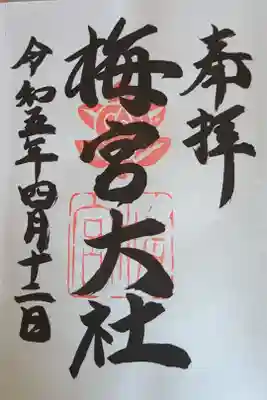 奉拝
梅宮大社
令和五年四月十二日